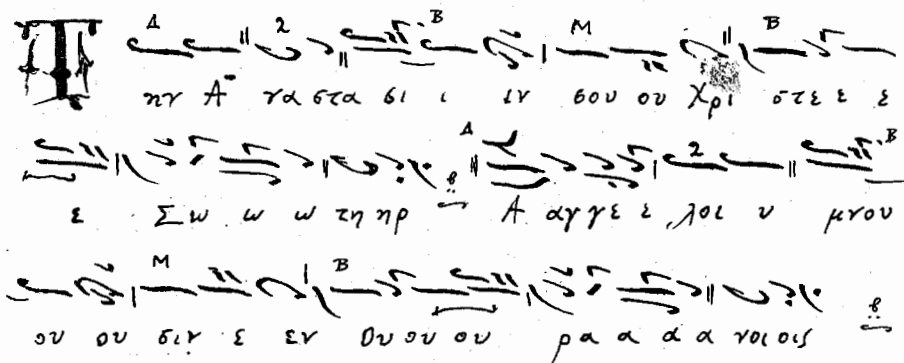 Την Α να στα σι ι ιν σου ου Χρι στε ε ε
ε Σω ω ω ω τη ηρ Α αγ γε ε λοι υ μνου
ου ου σιν ε εν Ου ου ου ρα α α α νοι οις